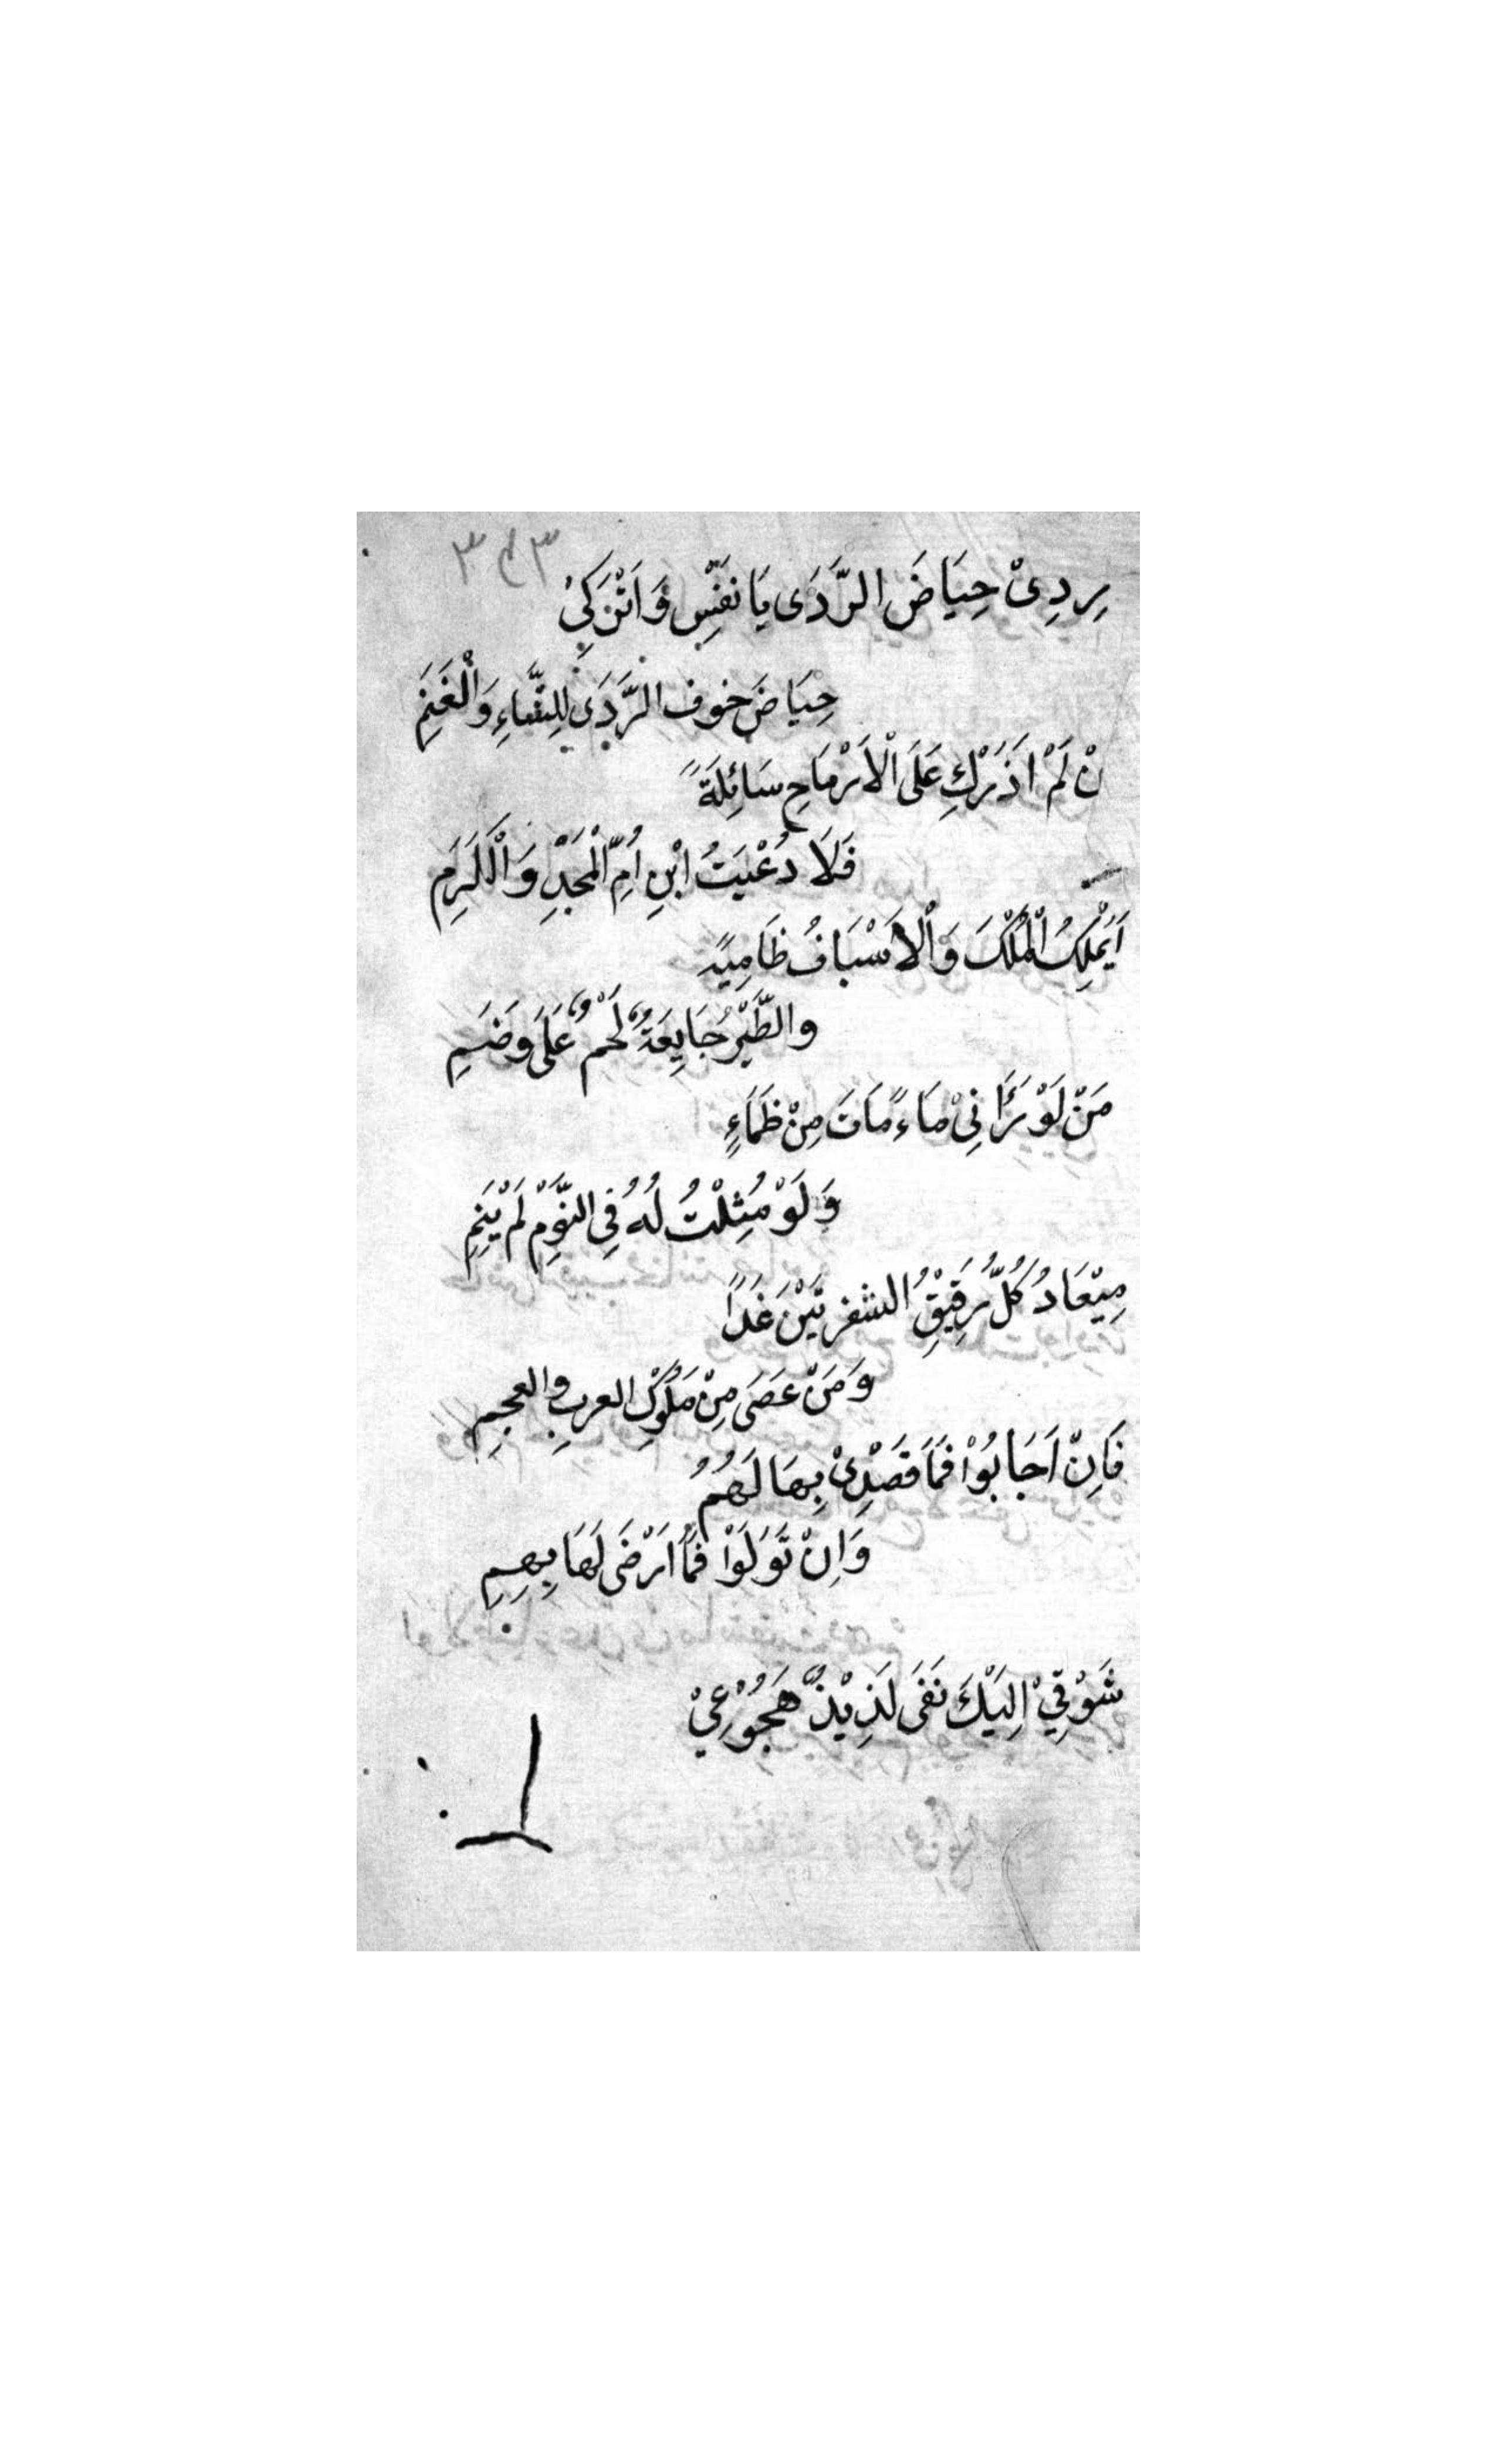 رِدِىْ حِيَاضَ الرَّدَى يَا نَفْسِ وَاتْرَكِىْ
حِيَاضَ خوف الرَّدَى لِلشَّاءِ وَالْغَنَمِ
نْ لَمْ اَذَرْكِ عَلَى الْاَرْمَاحِ سَائِلَةً
فَلَا دُعْيَتُ ابْنِ اُمِّ الْمَجْدِ وَالْكَرَمِ
اَيَمْلِكُ الْمُلْكَ وَالْاَسْيَافُ ظَامِيَةً
والطَّيْرُ جَايِعَةٌ لَحْمٌ عَلَى وَضَمِ
مَنْ لَوْ يَرَانِىْ مَاءً مَاتَ مِنْ ظَمَاءٍ
وَلَوْ مُثِلْتُ لَهُ فِى النَّوْمِ لَمْ يَنَمِ
مِيْعَادُ كُلُّ رَقِيْقِ الشفرتَيْنَ غَدًا
وَمَنْ عَصَى مِنْ مَلُوْكِ العرب والعجمِ
فَاِنْ اَجَابُوْا فَمَا قَصَدِىْ بِهَا لَهُمُ
وَاِنْ تَوَلَوْا فَمَا اَرْضَى لَهَا بِهِمِ
شَوْقِيْ اِلَيْكَ نَفَى لَذِيْذُ هَجُوْعِيْ